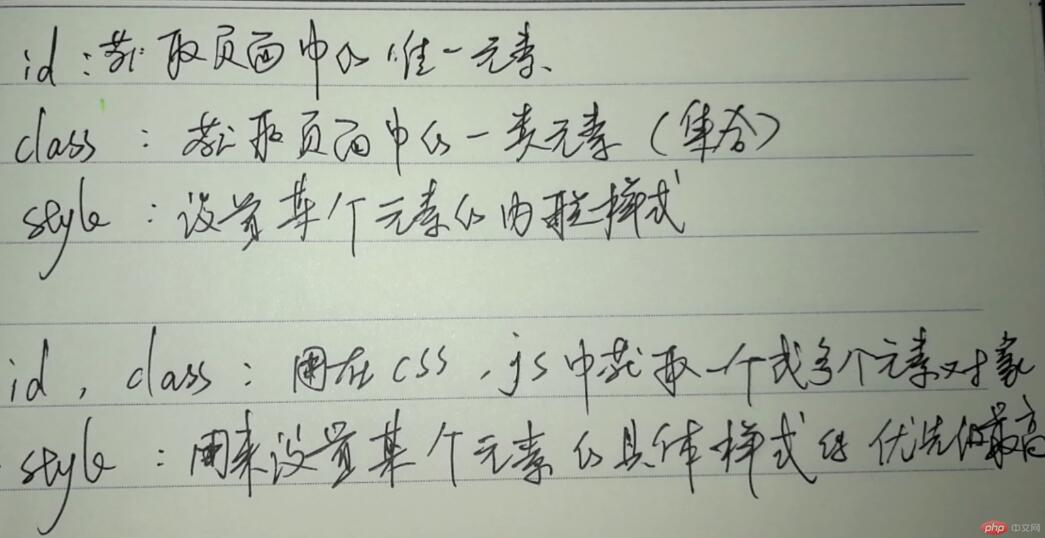 id：获取页面中的唯一元素、
class：获取页面中的一类元素（集合）
style：设置某个元素的内联样式
id，class：用在css，js中获取一个或多个元素对象
style：用来设置某个元素的具体样式 优先级最高
php 中文网